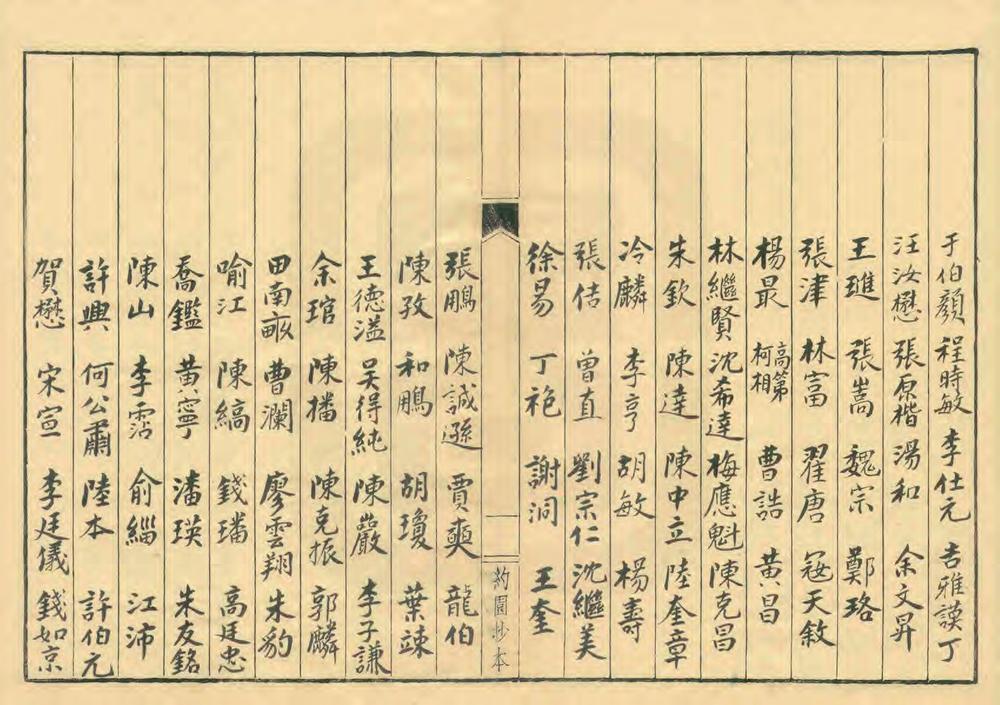 于伯顏 程時敏 李仕元 吉雅謨丁
汪汝懋 張原楷 湯和 余文昇
王璡 張嵩 魏宗 鄭珞
張津 林富 翟唐 寇天敘
楊最 高第 柯相 曹誥 黃昌
林繼賢 沈希達 梅應魁 陳克昌
朱欽 陳達 陳中立 陸奎章
冷麟 李亨 胡敏 楊壽
張佶 曾直 劉宗仁 沈繼美
徐易 丁袍 謝洞 王奎
葯園抄本
張鵰 陳誠遜 賈奭 龍伯
陳孜 和鵰 胡瓊 葉竦
王德溢 吳得純 陳嚴 李子謙
余琯 陳播 陳克振 郭麟
田南畝 曹瀾 廖雲翔 朱豹
喻江 陳縞 錢璠 高廷忠
喬鑑 黃寧 潘瑛 朱友銘
陳山 李霑 俞緇 江沛
許興 何公肅 陸本 許伯元
賀懋 宋宣 李廷儀 錢如京